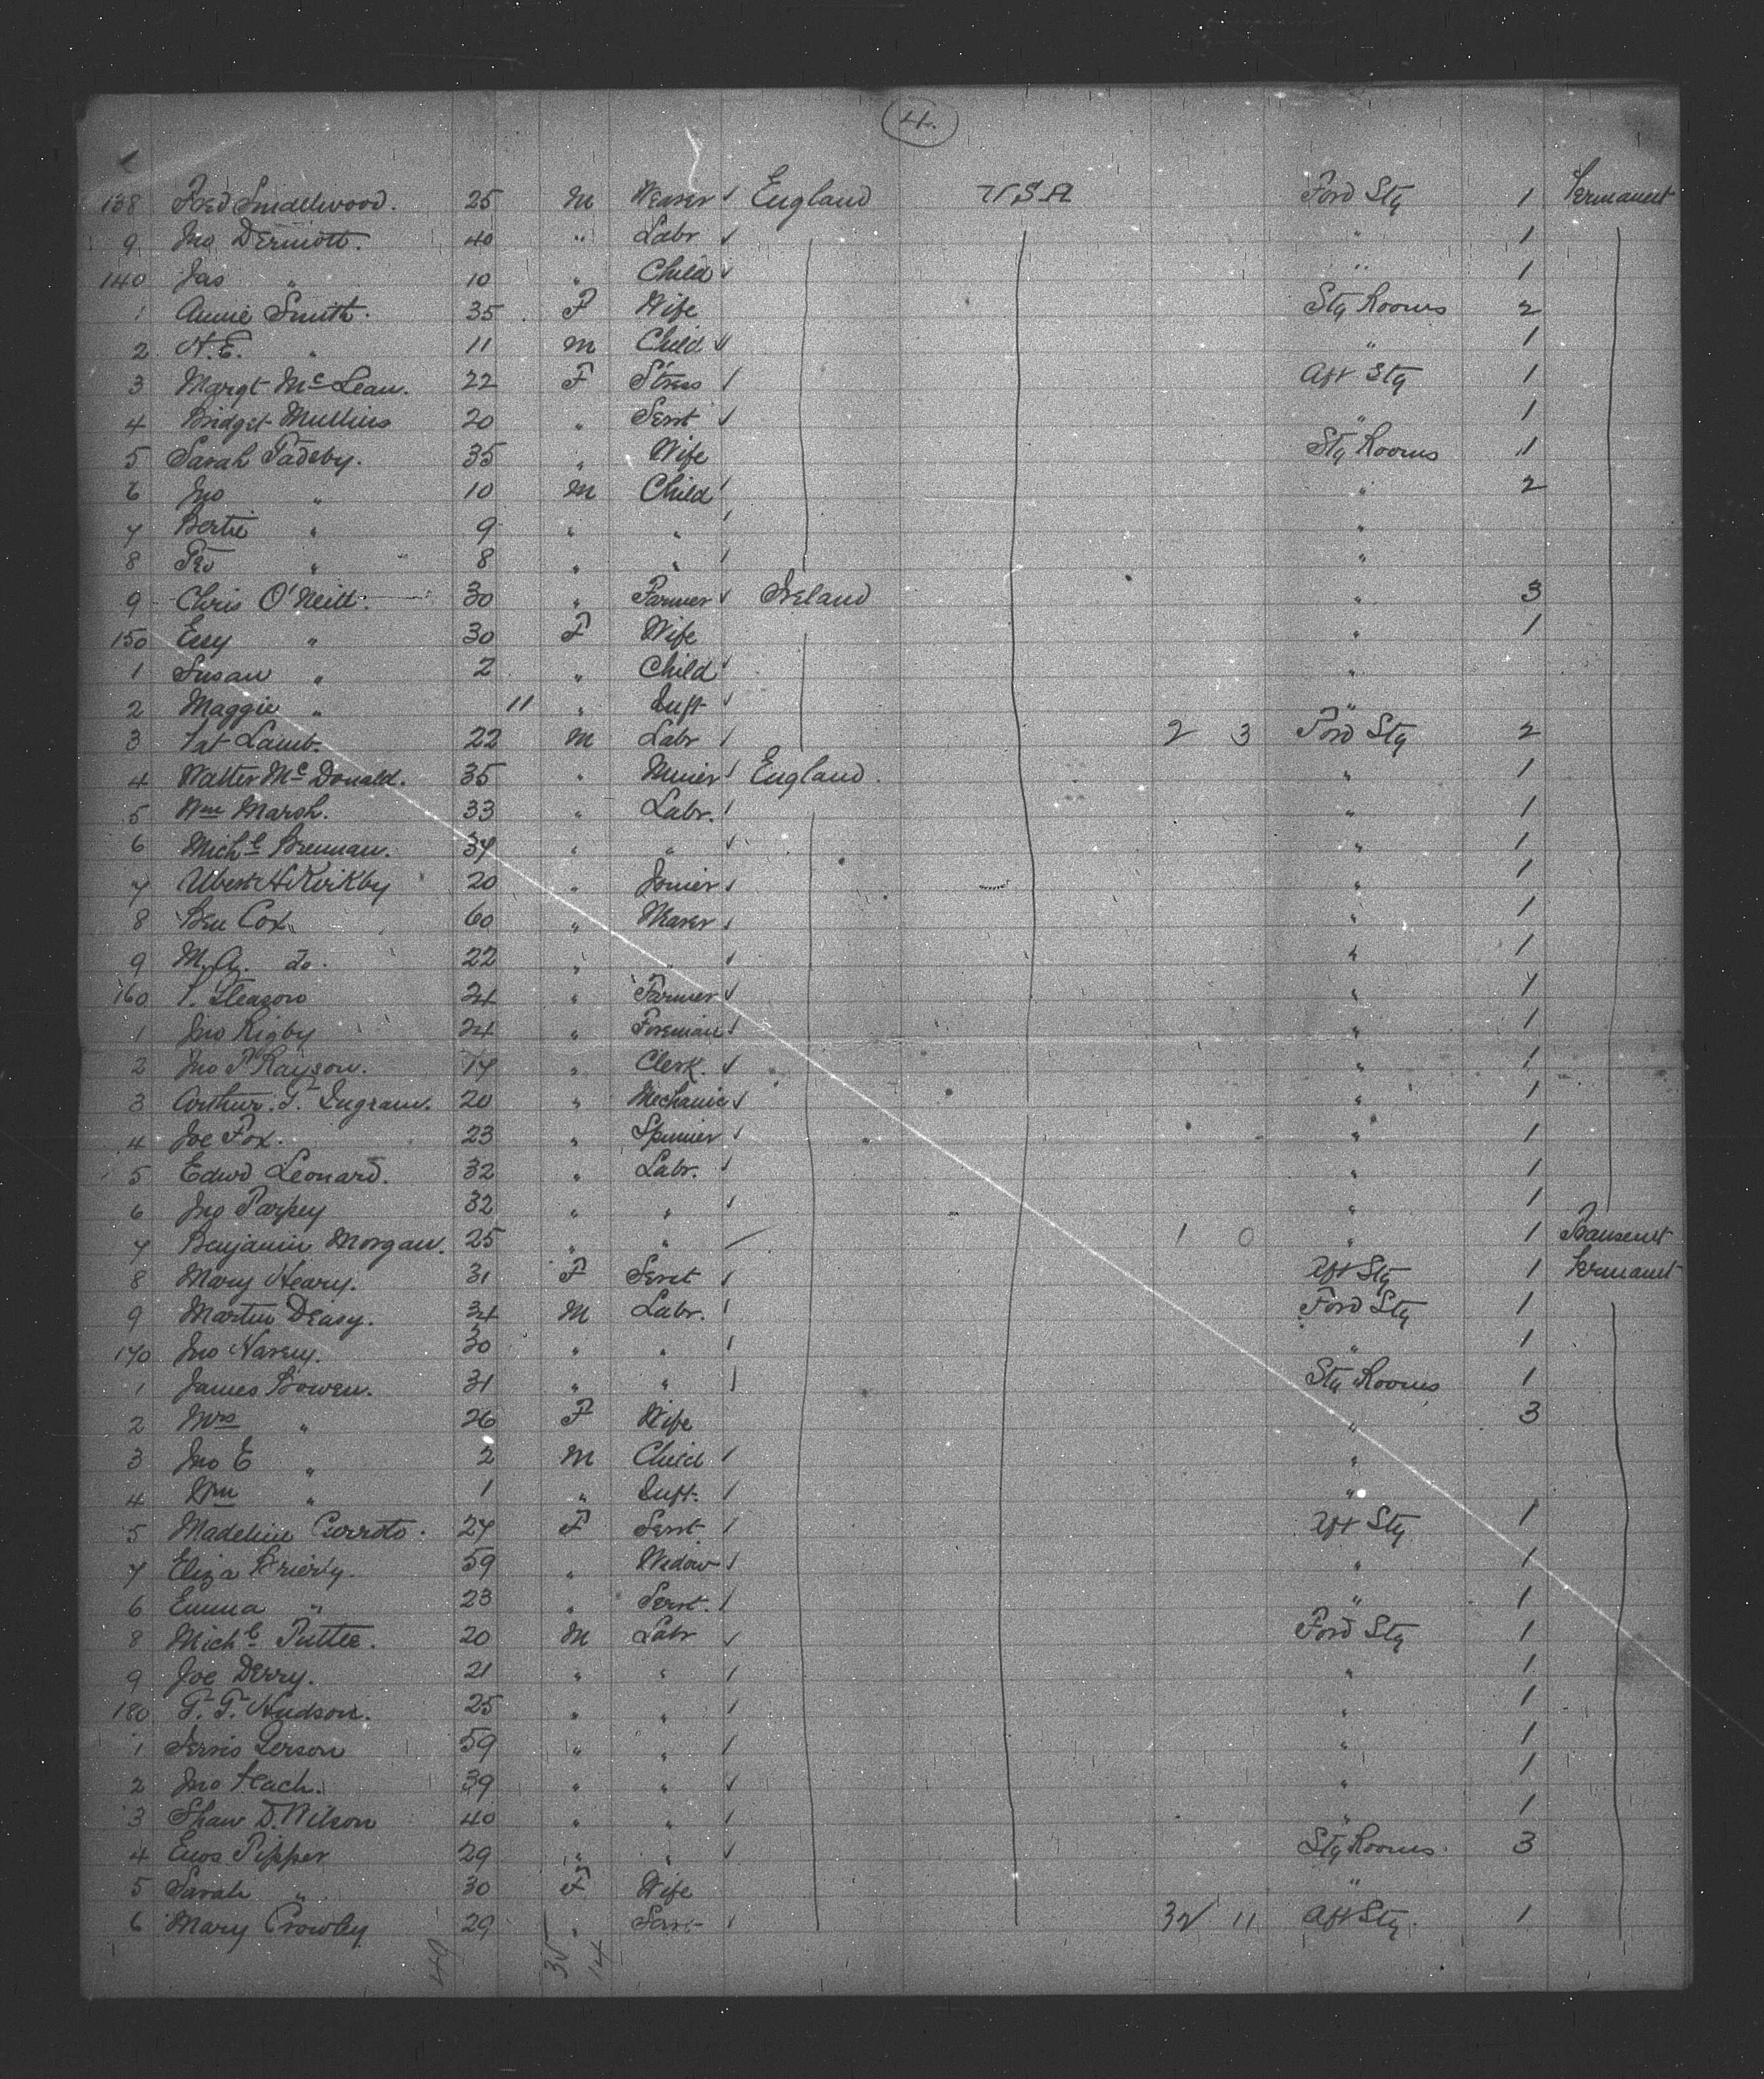 4.
138 Fred Smallwood. 25 M Weaver England U S A Ford Stg 1 Permanent
9 Jno Dermott. 40 " Labr " 1
140 Jas " 10 " Child " 1
1 Annie Smith. 35 F Wife Stg Rooms 2
2 H. E. " 11 M Child " 1
3 Margt McLean. 22 F Stress Aft Stg 1
4 Bridget Mullins 20 " Servt " 1
5 Sarah 35 " Wife Stg Rooms 1
6 Jno " 10 M Child " 2
7 Bertie " 9 " " "
8 " 8 " " "
9 Chris O'Neill. 30 " Farmer Ireland " 3
150 " 30 F Wife " 1
1 Susan " 2 " Child "
2 Maggie " 11 " Inft "
3 Pat Lamb. 22 M Labr 2 3 Ford Stg 2
4 Walter McDonald. 35 " Miner England. " 1
5 Wm Marsh. 33 " Labr. " 1
6 Michl Brennan. 37 " " " 1
7 Kirkby 20 " Joiner " 1
8 Ben Cox 60 " Weaver " 1
9 M. A. do. 22 " " " 1
160 Gleason 24 " Farmer " 1
1 Jno Rigby 24 " Foreman " 1
2 Jno P Rayson. 17 " Clerk. " 1
3 Arthur. T. Ingram. 20 " Mechanic " 1
4 Joe Fox. 23 " Spinner " 1
5 Edwd Leonard. 32 " Labr. " 1
6 Jno 32 " " " 1
7 Benjamin Morgan. 25 " " 1 0 " 1 Transient
8 Mary Heary. 31 F Servt Aft Stg 1 Permanent
9 Martin Deasy. 34 M Labr. Ford Stg 1
170 Jno 30 " " " 1
1 James Bowen. 31 " " Stg Rooms 1
2 Mrs " 26 F Wife " 3
3 Jno E " 2 M Child "
4 Wm " 1 " Inft. "
5 Madeline 27 F Servt Aft Stg 1
7 Eliza Brierly. 59 " Widow " 1
6 Emma " 23 " Servt. " 1
8 Michl 20 M Labr Ford Stg 1
9 Joe Derry. 21 " " " 1
180 T. T. Hudson. 25 " " " 1
1 59 " " " 1
2 Jno 39 " " " 1
3 Shaw D. Wilson 40 " " " 1
4 Enos Pipper 29 " " Stg Rooms. 3
5 Sarah " 30 F Wife "
6 Mary Crowley 29 " Servt 32 11 Aft Stg. 1
49 35 14